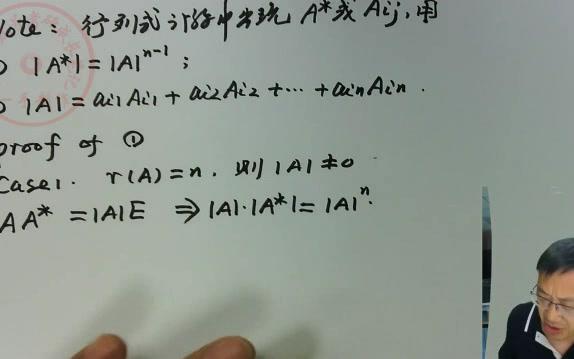 Note: 行列式计算中出现 A*或 Aij, 用
① |A*| = |A|ⁿ⁻¹ ;
② |A| = ai1Ai1 + ai2Ai2 + ··· + ainAin .
proof of ①
Case1. r(A) = n. 则 |A| ≠ 0
AA* = |A|E ⇒ |A|·|A*| = |A|ⁿ.